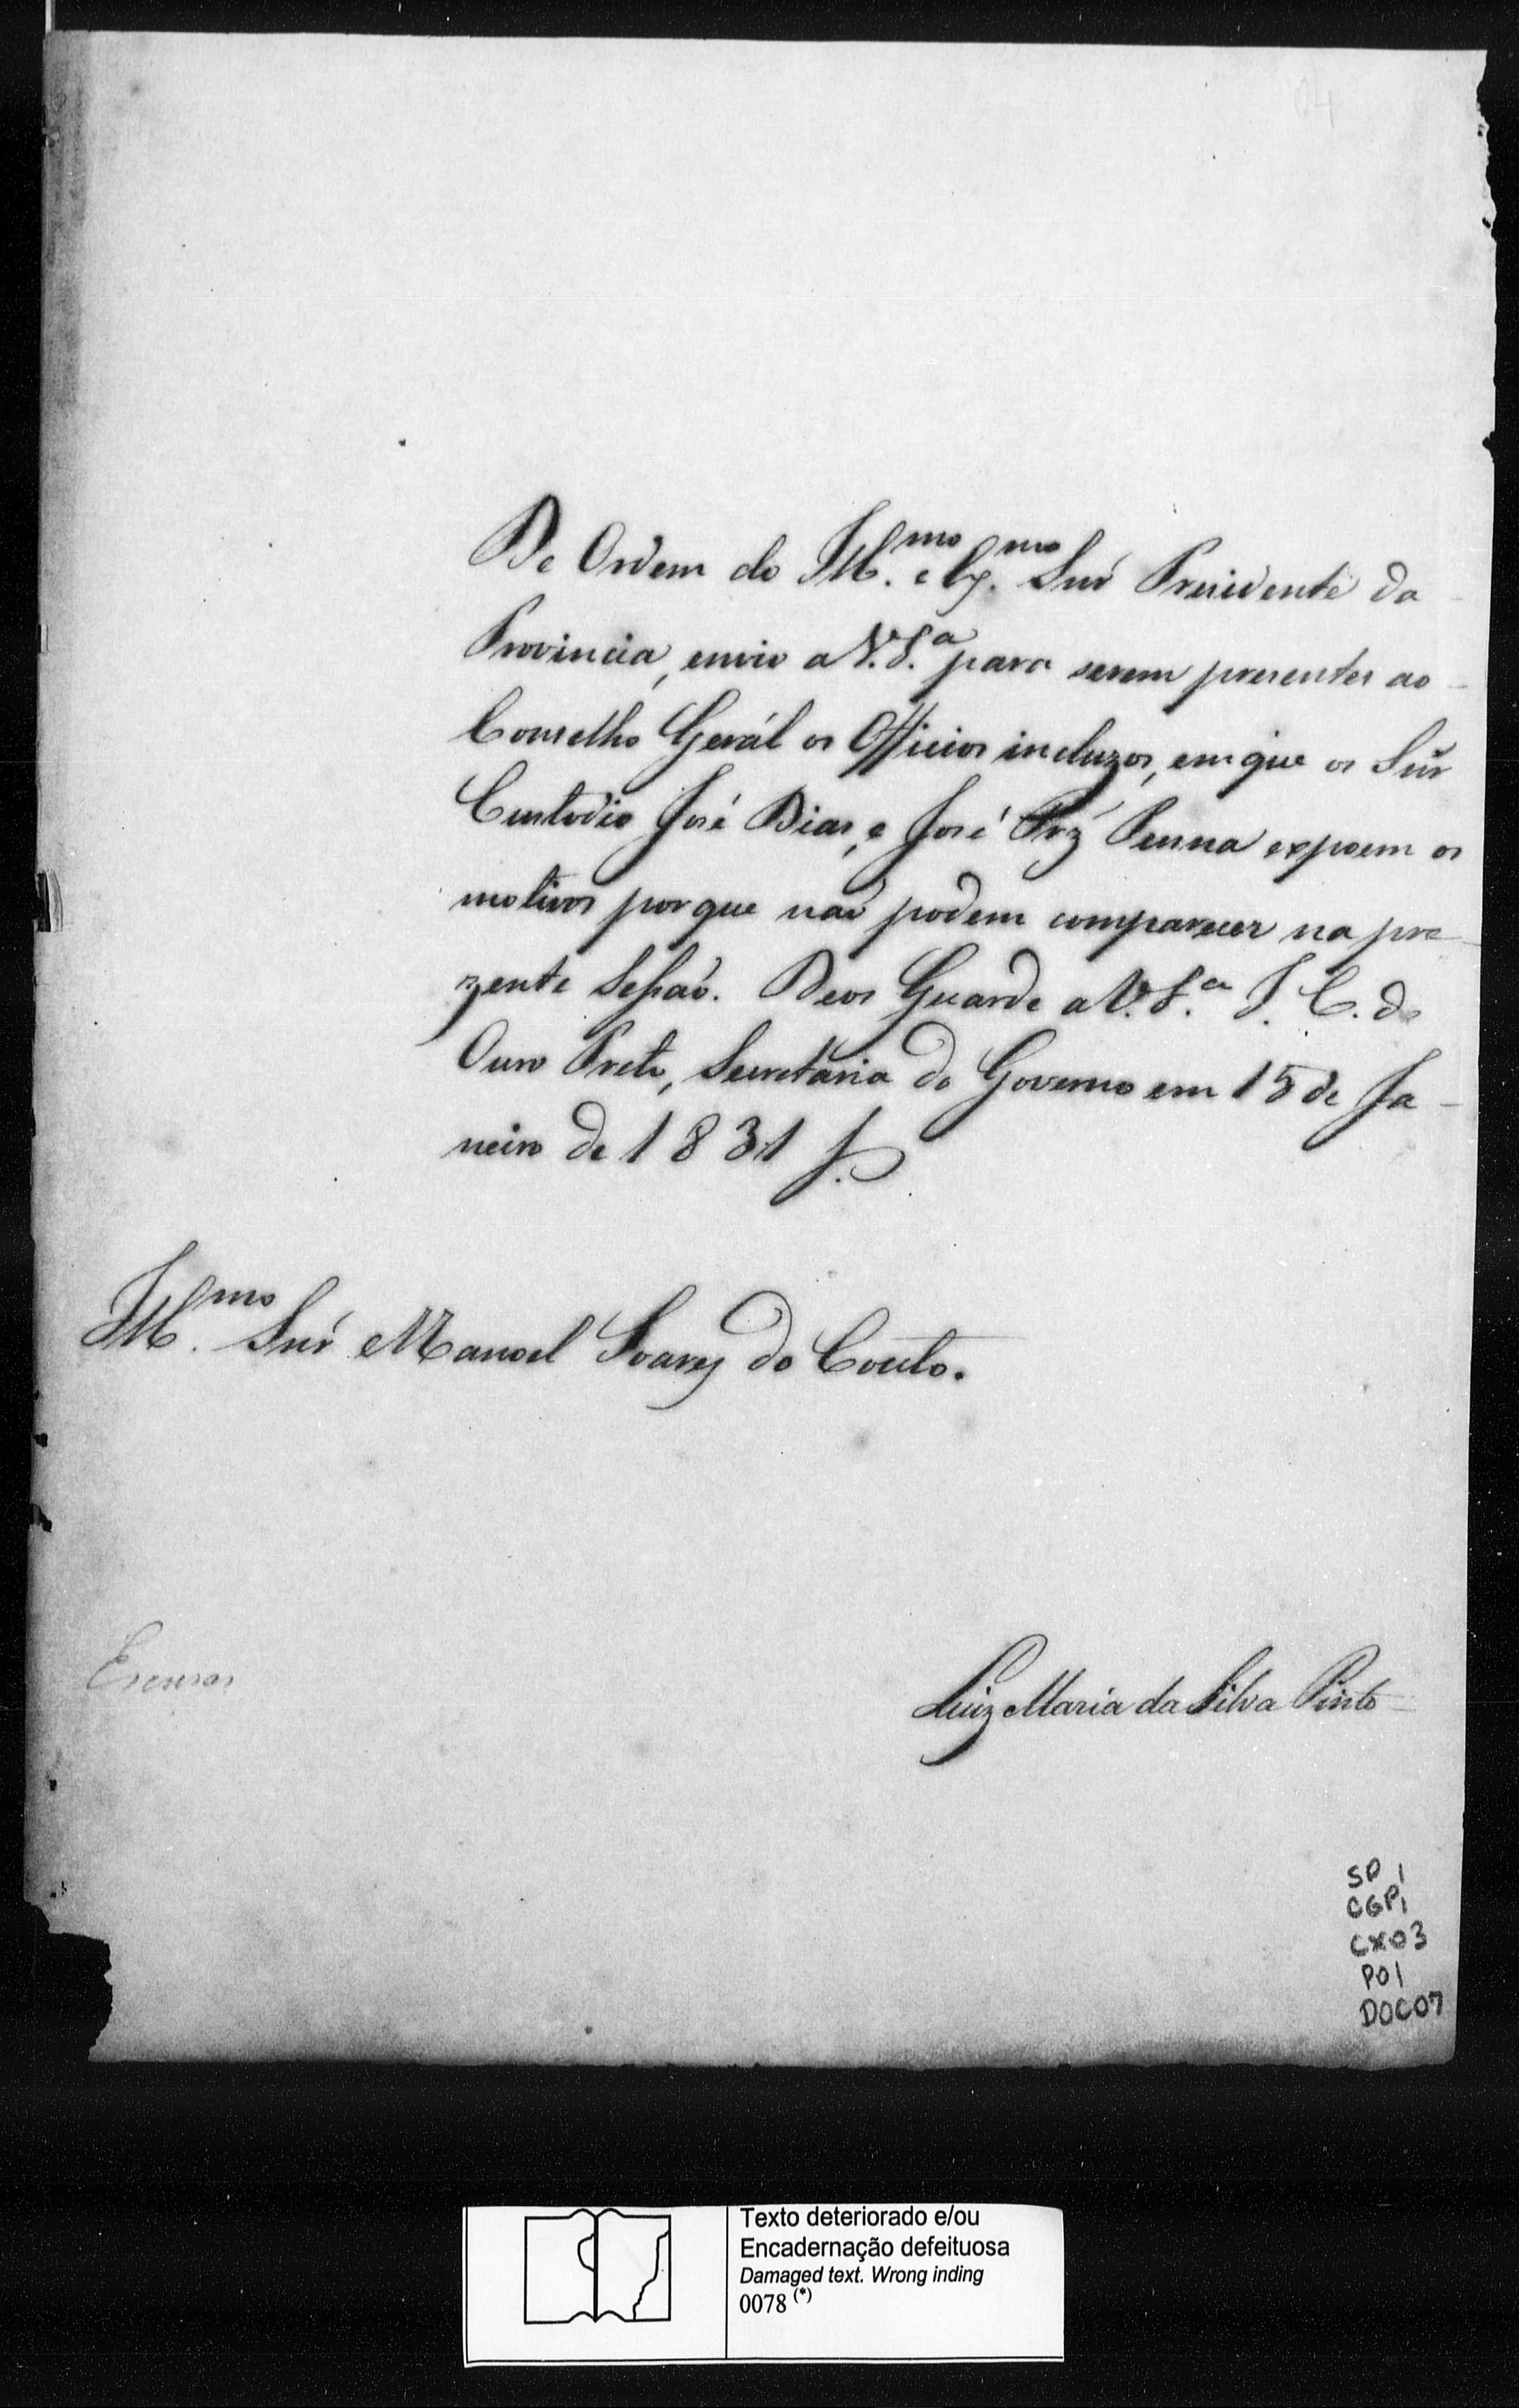 De Ordem do Ill.mo e Ex.mo Snr̃ Presidente da
Provincia, envio a V.S.a para serem presentes ao
Conselho Gerál os Officios incluzos, em que os Snr̃
Custodio José Dias, e José Frz̃ Penna expoem os
motivos porque naõ podem comparecer na pre
zente Sessaõ. Deos Guarde a V.S.a I. C. do
Ouro Preto, Secretaria do Governo em 15 de Ja-
neiro de 1831
Ill.mo Snr̃ Manoel Soares do Couto.
Escusas
Luiz Maria da Silva Pinto
SP 1
CGP1
CX03
P01
DOC07
Texto deteriorado e/ou
Encadernação defeituosa
Damaged text. Wrong inding
0078 (*)